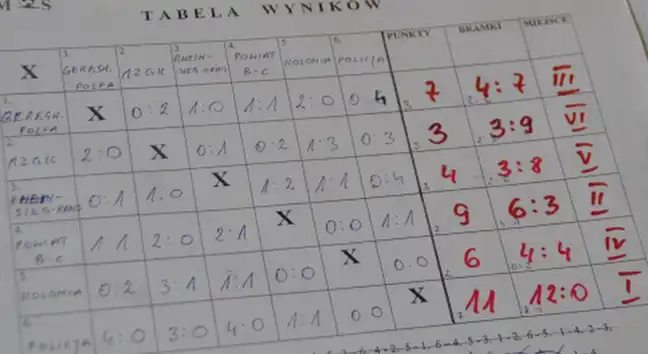 M S
TABELA WYNIKÓW
X 1 GERESH. POLFA 2 AZGK 3 RHEIN- 4 POWIAT B-C 5 KOLONIA 6 POLICJA PUNKTY BRAMKI MIEJSCE
1. GERESH. POLFA X 0:2 1:0 1:1 2:0 0 4 7 4:7 III
2. AZGK 2:0 X 0:1 0:2 1:3 0:3 3 3:9 VI
3. RHEIN- SIEG-KREIS 0:1 1:0 X 1:2 1:1 0:4 4 3:8 V
4. POWIAT B-C 1 1 2:0 2:1 X 0:0 1:1 9 6:3 II
5. KOLONIA 0:2 3:1 1:1 0:0 X 0:0 6 4:4 IV
6. POLICJA 4:0 3:0 4:0 1:1 0 0 X 11 12:0 I
4-2, 5-1, 6-4, 5-3, 1-2, 6-5, 1-4, 2-3,